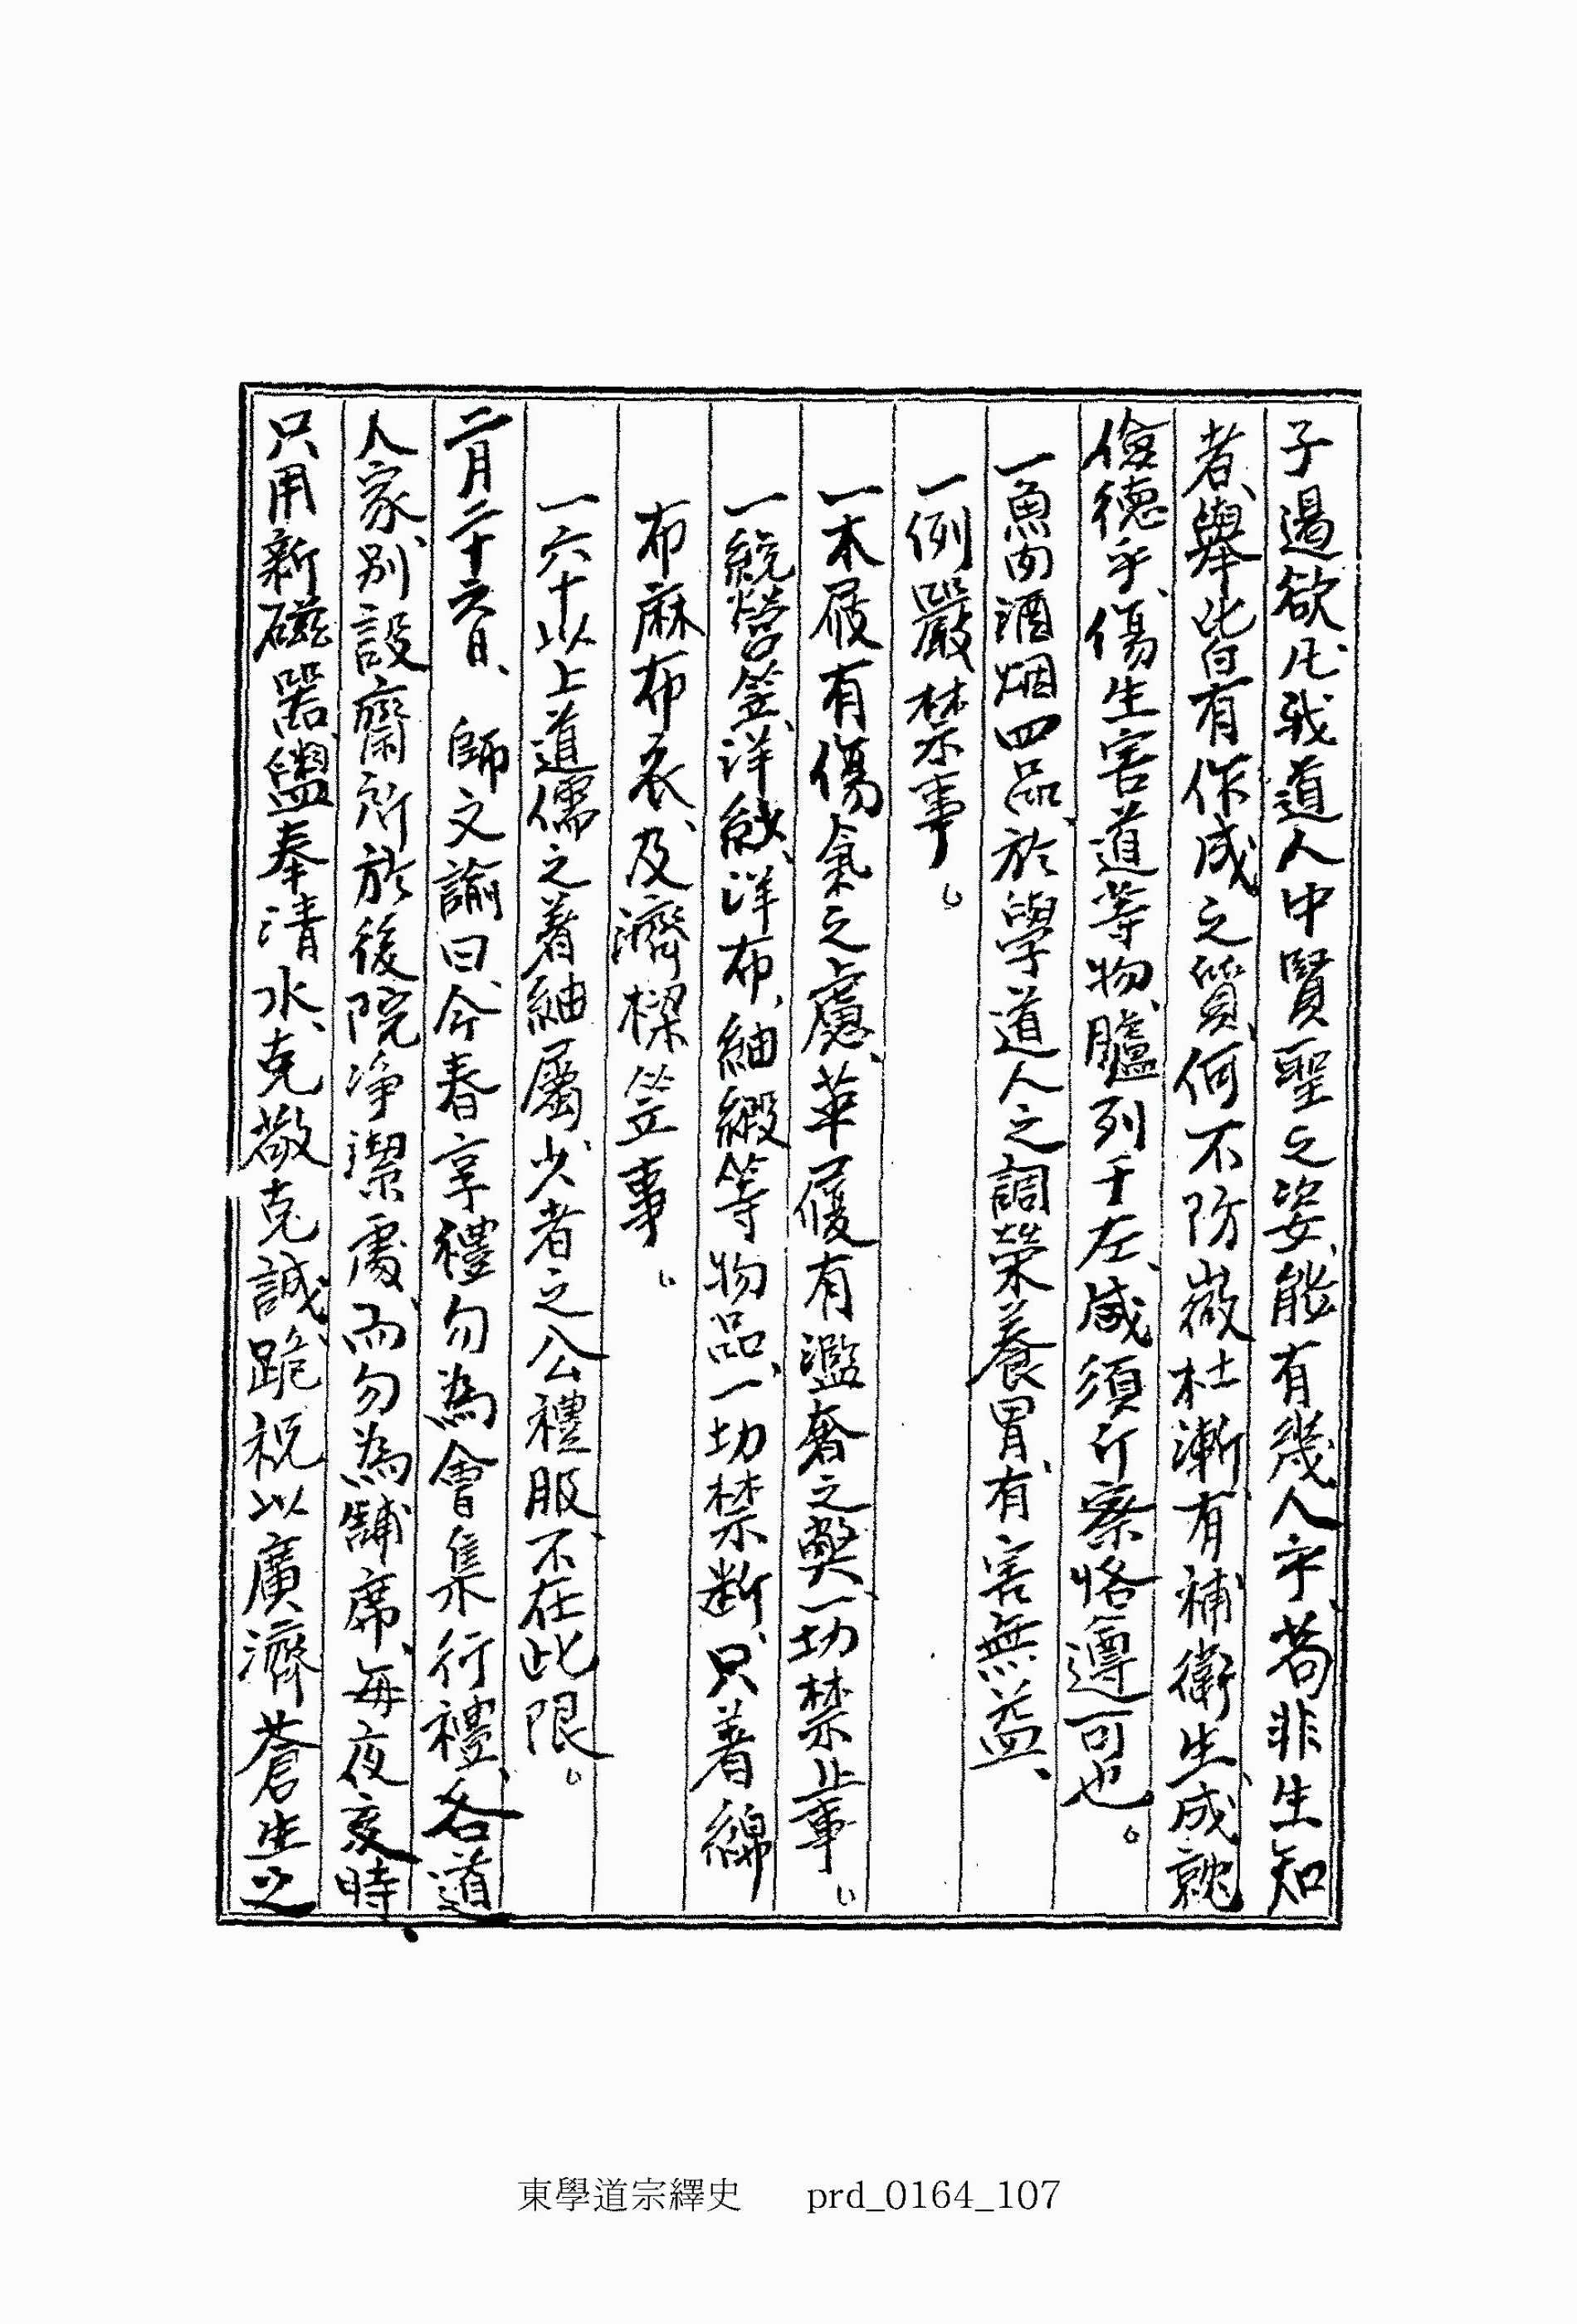 子遏欲、凡我道人中賢聖之姿、能有幾人乎、若非生知
者、擧皆有作成之質、何不防微杜漸、有補衛生、成就
儉德乎、傷生害道等物、臚列于左、咸須斤察恪遵可也。
一魚肉酒烟四品、於學道人之調榮養胃、有害無益、
一例嚴禁事。
一木屐有傷氣之慮、革履有濫奢之獘、一切禁止事。
一統營笠、洋絨、洋布、紬緞等物品、一切禁断、只着綿
布麻布衣、及濟樑笠事。
一六十以上道儒之着紬屬、少者之公禮服、不在此限。
二月二十六日、 師文諭曰、今春享禮勿為會集行禮、各道
人家、別設齋所於後院净潔處、而勿為鋪席、每夜亥時、
只用新磁器、盥奉清水、克敬克誠、跪祝以廣濟蒼生之
東學道宗繹史 prd_0164_107